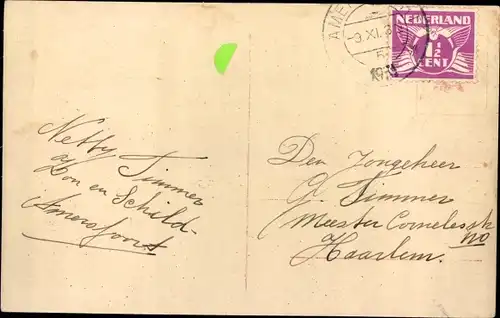 NEDERLAND
1½
CENT
AME
-9.XI.
Netty Timmer
Zon en Schild-
Amersfoort
Den Jongeheer
G. Timmer
Meester Cornelesstr
no
Haarlem.